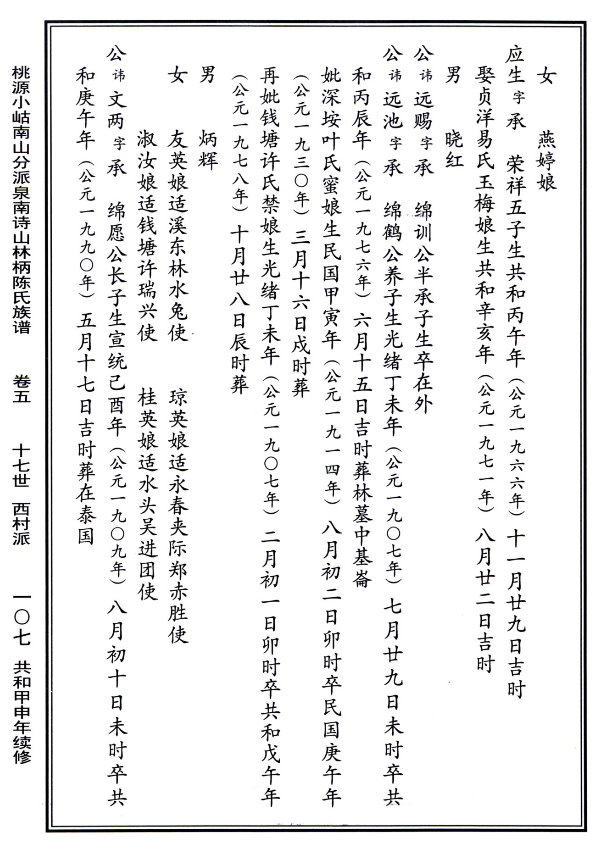 女　燕婷娘
应生字承　荣祥五子生共和丙午年（公元一九六六年）十一月廿九日吉时
娶贞洋易氏玉梅娘生共和辛亥年（公元一九七一年）八月廿二日吉时
男　晓红
公讳远赐字承　绵训公半承子生卒在外
公讳远池字承　绵鹤公养子生光绪丁未年（公元一九〇七年）七月廿九日未时卒共
和丙辰年（公元一九七六年）六月十五日吉时葬林墓中基崙
妣深垵叶氏蜜娘生民国甲寅年（公元一九一四年）八月初二日卯时卒民国庚午年
（公元一九三〇年）三月十六日戌时葬
再妣钱塘许氏禁娘生光绪丁未年（公元一九〇七年）二月初一日卯时卒共和戊午年
（公元一九七八年）十月廿八日辰时葬
男　炳辉
女　友英娘适溪东林水兔使　琼英娘适永春夹际郑赤胜使
淑汝娘适钱塘许瑞兴使　桂英娘适水头吴进团使
公讳文两字承　绵愿公长子生宣统己酉年（公元一九〇九年）八月初十日未时卒共
和庚午年（公元一九九〇年）五月十七日吉时葬在泰国
桃源小岵南山分派泉南诗山林柄陈氏族谱　卷五　十七世　西村派　一〇七　共和甲申年续修